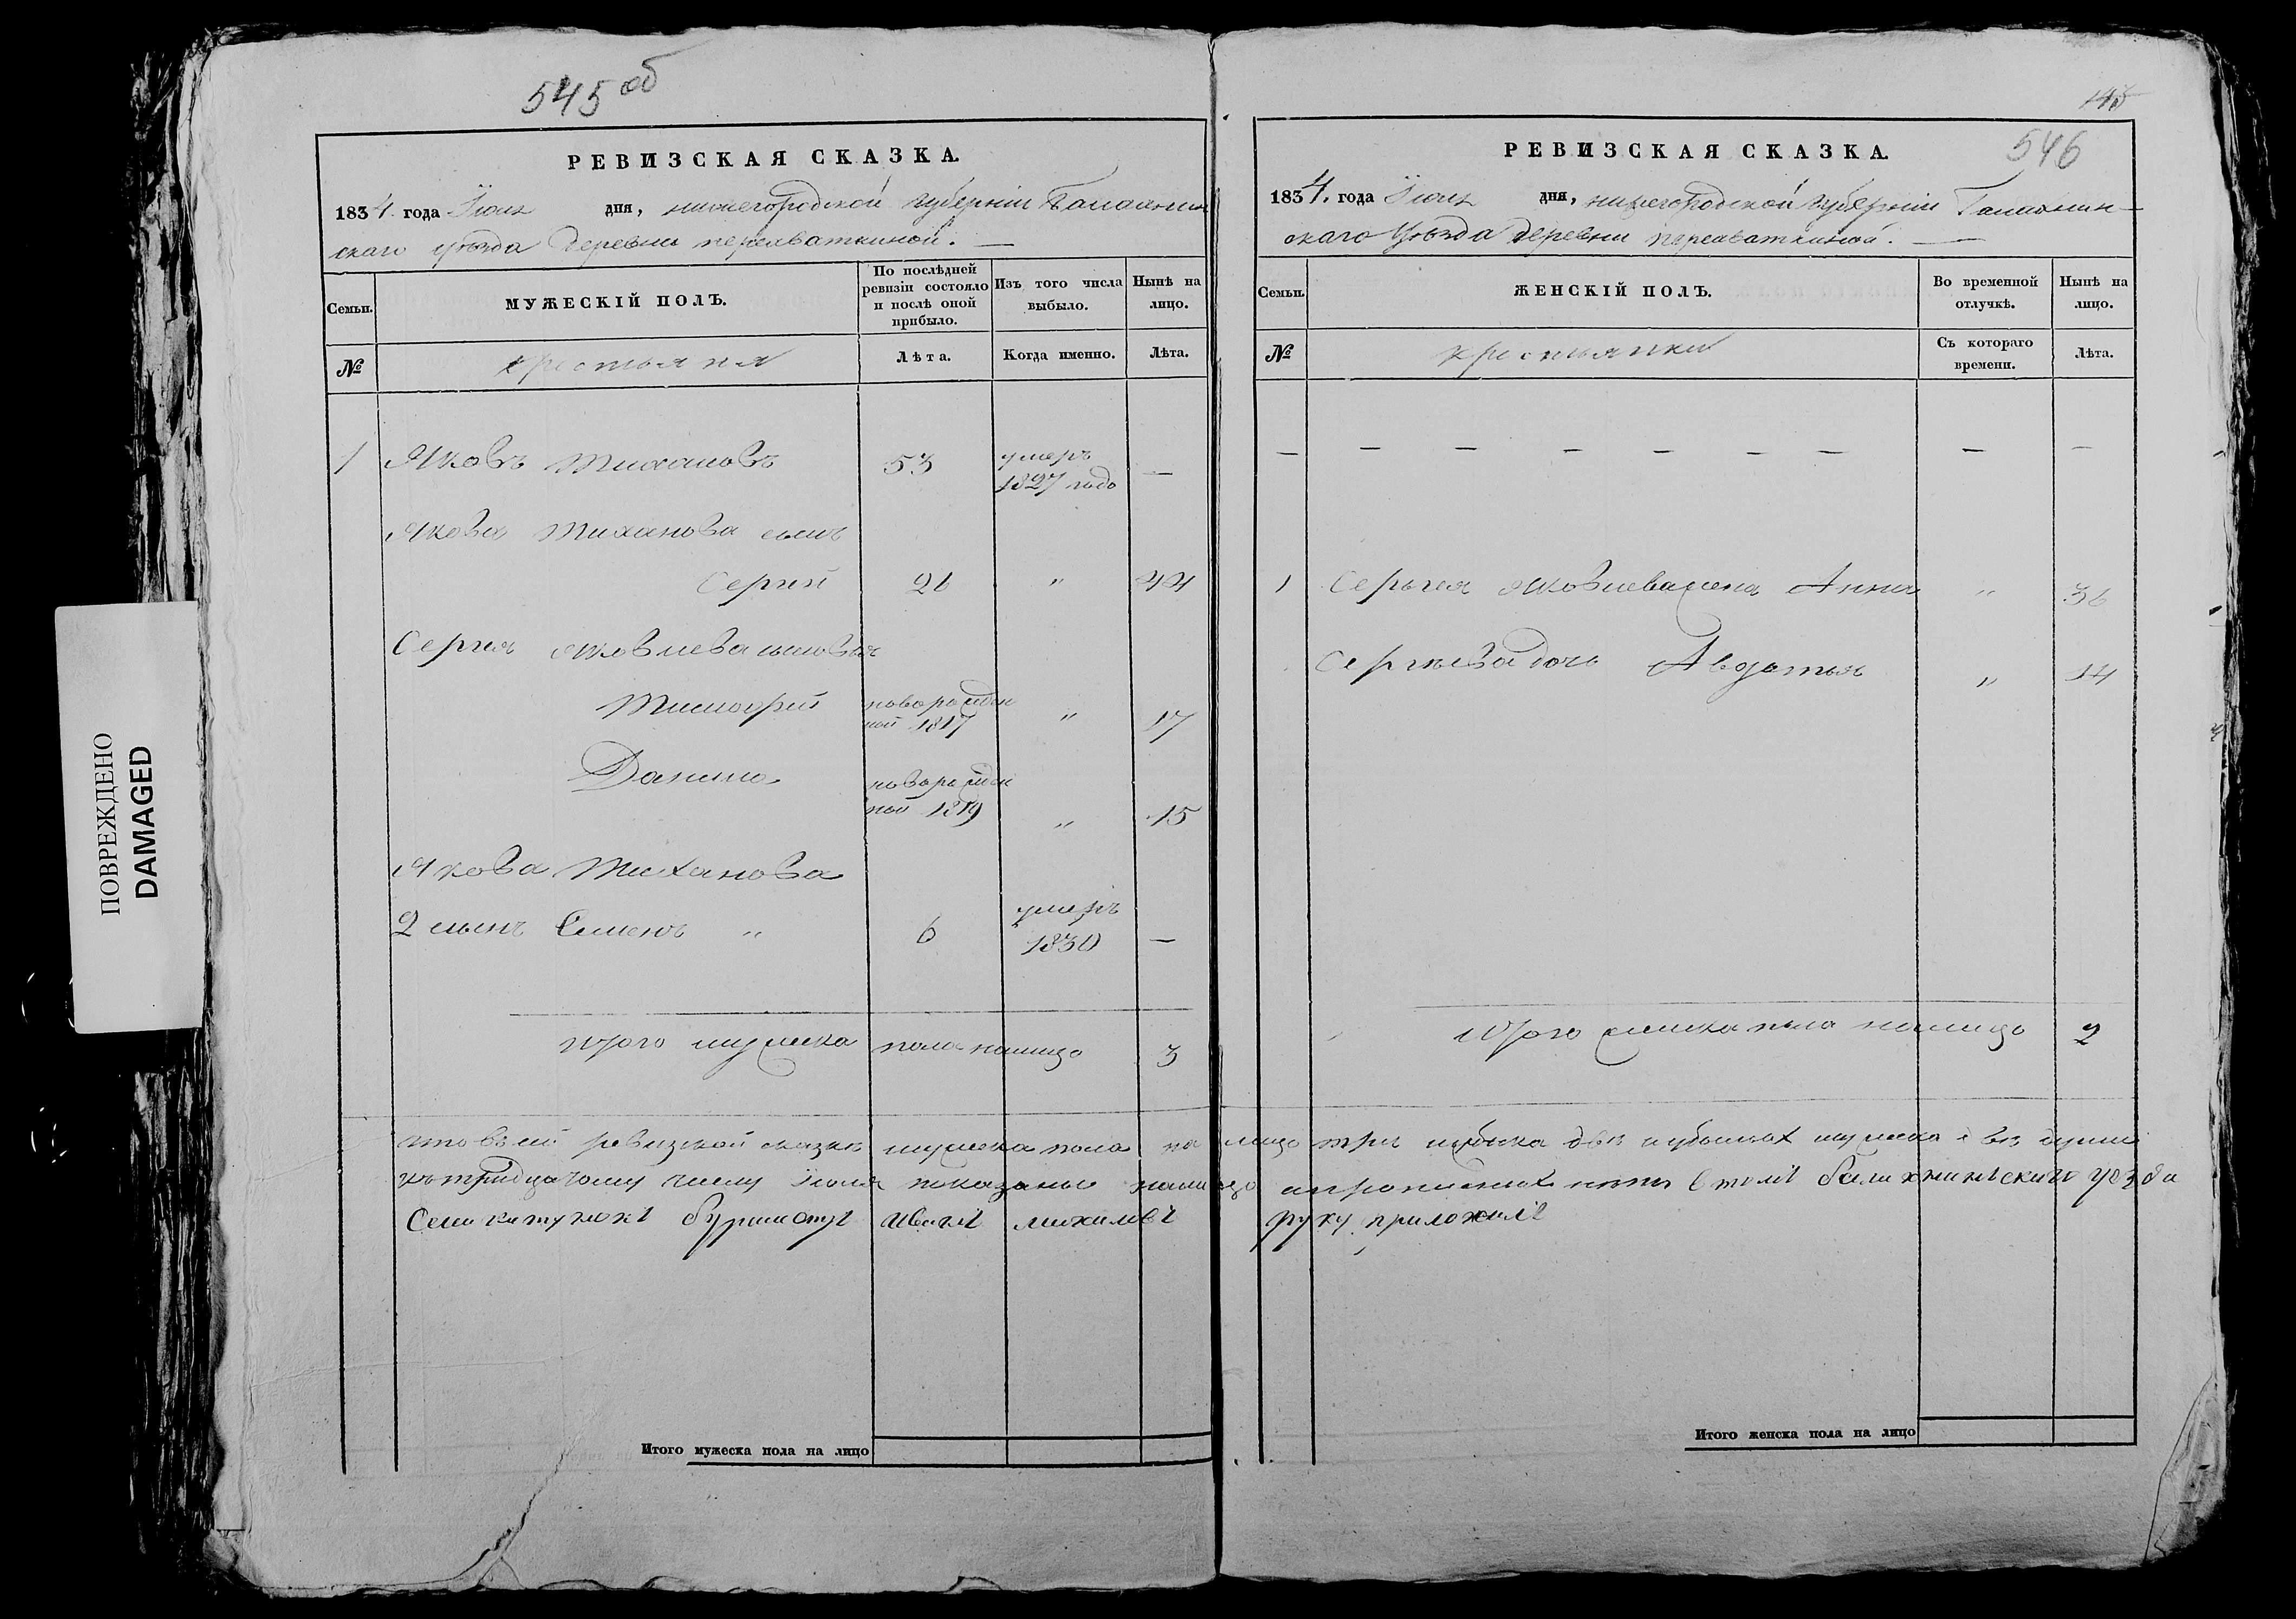 545 об
РЕВИЗСКАЯ СКАЗКА.
1834. года Июля дня, нижегородской губерніи Балахнин
скаго уѣзда деревни перехваткиной. —
Семьи.
МУЖЕСКІЙ ПОЛЪ.
По послѣдней ревизіи состояло и послѣ оной прибыло.
Изъ того числа выбыло.
Нынѣ на лицо.
№
крестьяня
Лѣта.
Когда именно.
Лѣта.
1 Яковъ Тихановъ 53 умеръ 1827 года —
Якова Тиханова сынъ
Сергей 26 " 44
Сергея Яковлева сыновья
Тимофей новорожден ной 1817 " 17
Данило новорожден ной 1819 " 15
Якова Тиханова
2 сынъ Семенъ " 6 умеръ 1830 —
Итого мужеска пола налицо 3
Итого мужеска пола на лицо
546
РЕВИЗСКАЯ СКАЗКА.
1834. года Июля дня, нижегородской губерніи Балахнин—
скаго Уѣзда деревни перехваткиной. —
Семьи.
ЖЕНСКІЙ ПОЛЪ.
Во временной отлучкѣ.
Нынѣ на лицо.
№
крестьянки
Съ котораго времени.
Лѣта.
— — — — — — — — —
1 Сергея Яковлева жена Анна " 36
Сергѣева дочь Авдотья " 14
Итого женска пола налицо 2
что в сей ревизской сказке мужеска пола на лицо три
къ тридцатому числу Июля показаны налицо балахнинскаго уѣзда
бурмистръ иванъ михаловъ руку приложилъ
Итого женска пола на лицо
ПОВРЕЖДЕНО
DAMAGED